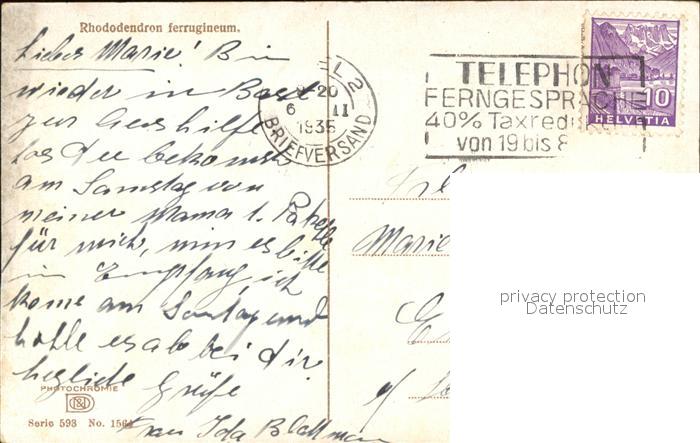 Rhododendron ferrugineum.
Liebes Marie! Bin
wieder in Basel
zur Aushilfe
das du bekomst
am Samstag von
meiner Mama 1. Paketle
für mich, nim es bitte
in Empfang, ich
kome am Sontag und
holle es ab bei dir.
hezliche Grüße
Frau Ida Blattman
PHOTOCHROMIE
Serie 593 No. 156
L 2
20
6 II
1935
BRIEFVERSAND
TELEPHON
FERNGESPRÄCHE
40% Taxreduk
von 19 bis 8
10
HELVETIA
Marie
privacy protection
Datenschutz